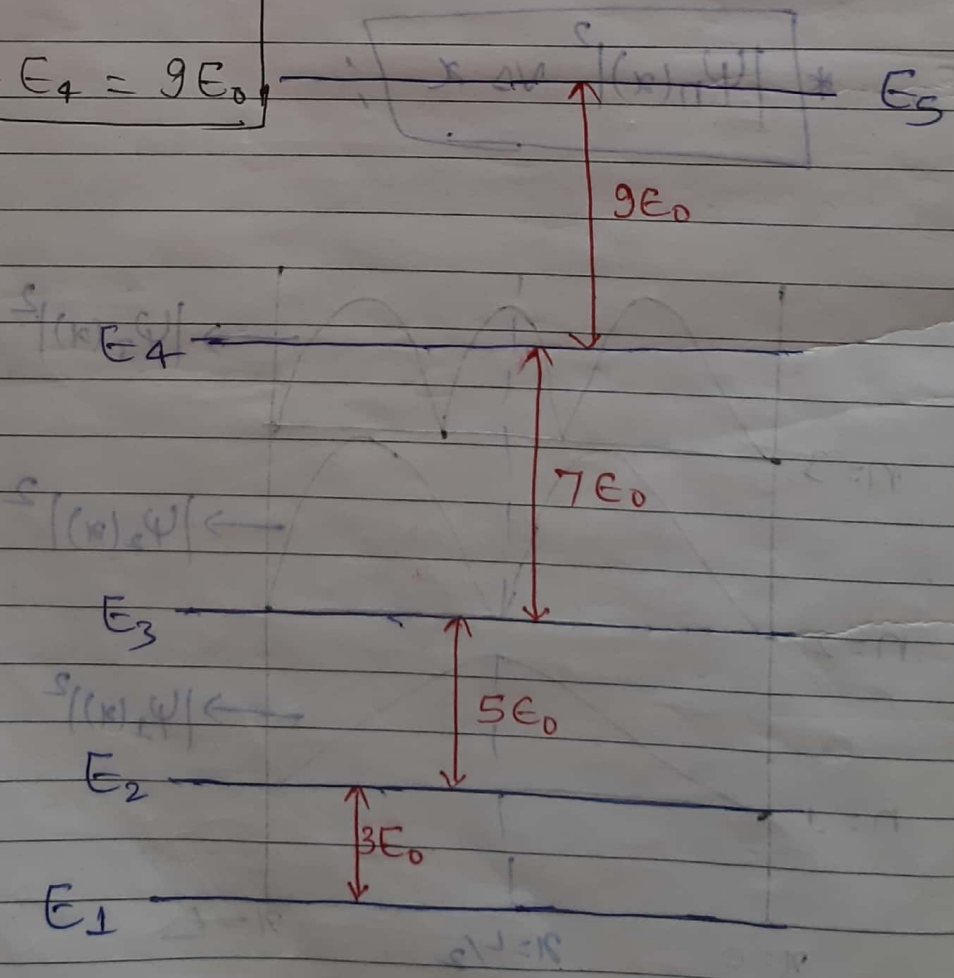 E₄ = 9E₀
E₅
9E₀
E₄
7E₀
E₃
5E₀
E₂
3E₀
E₁